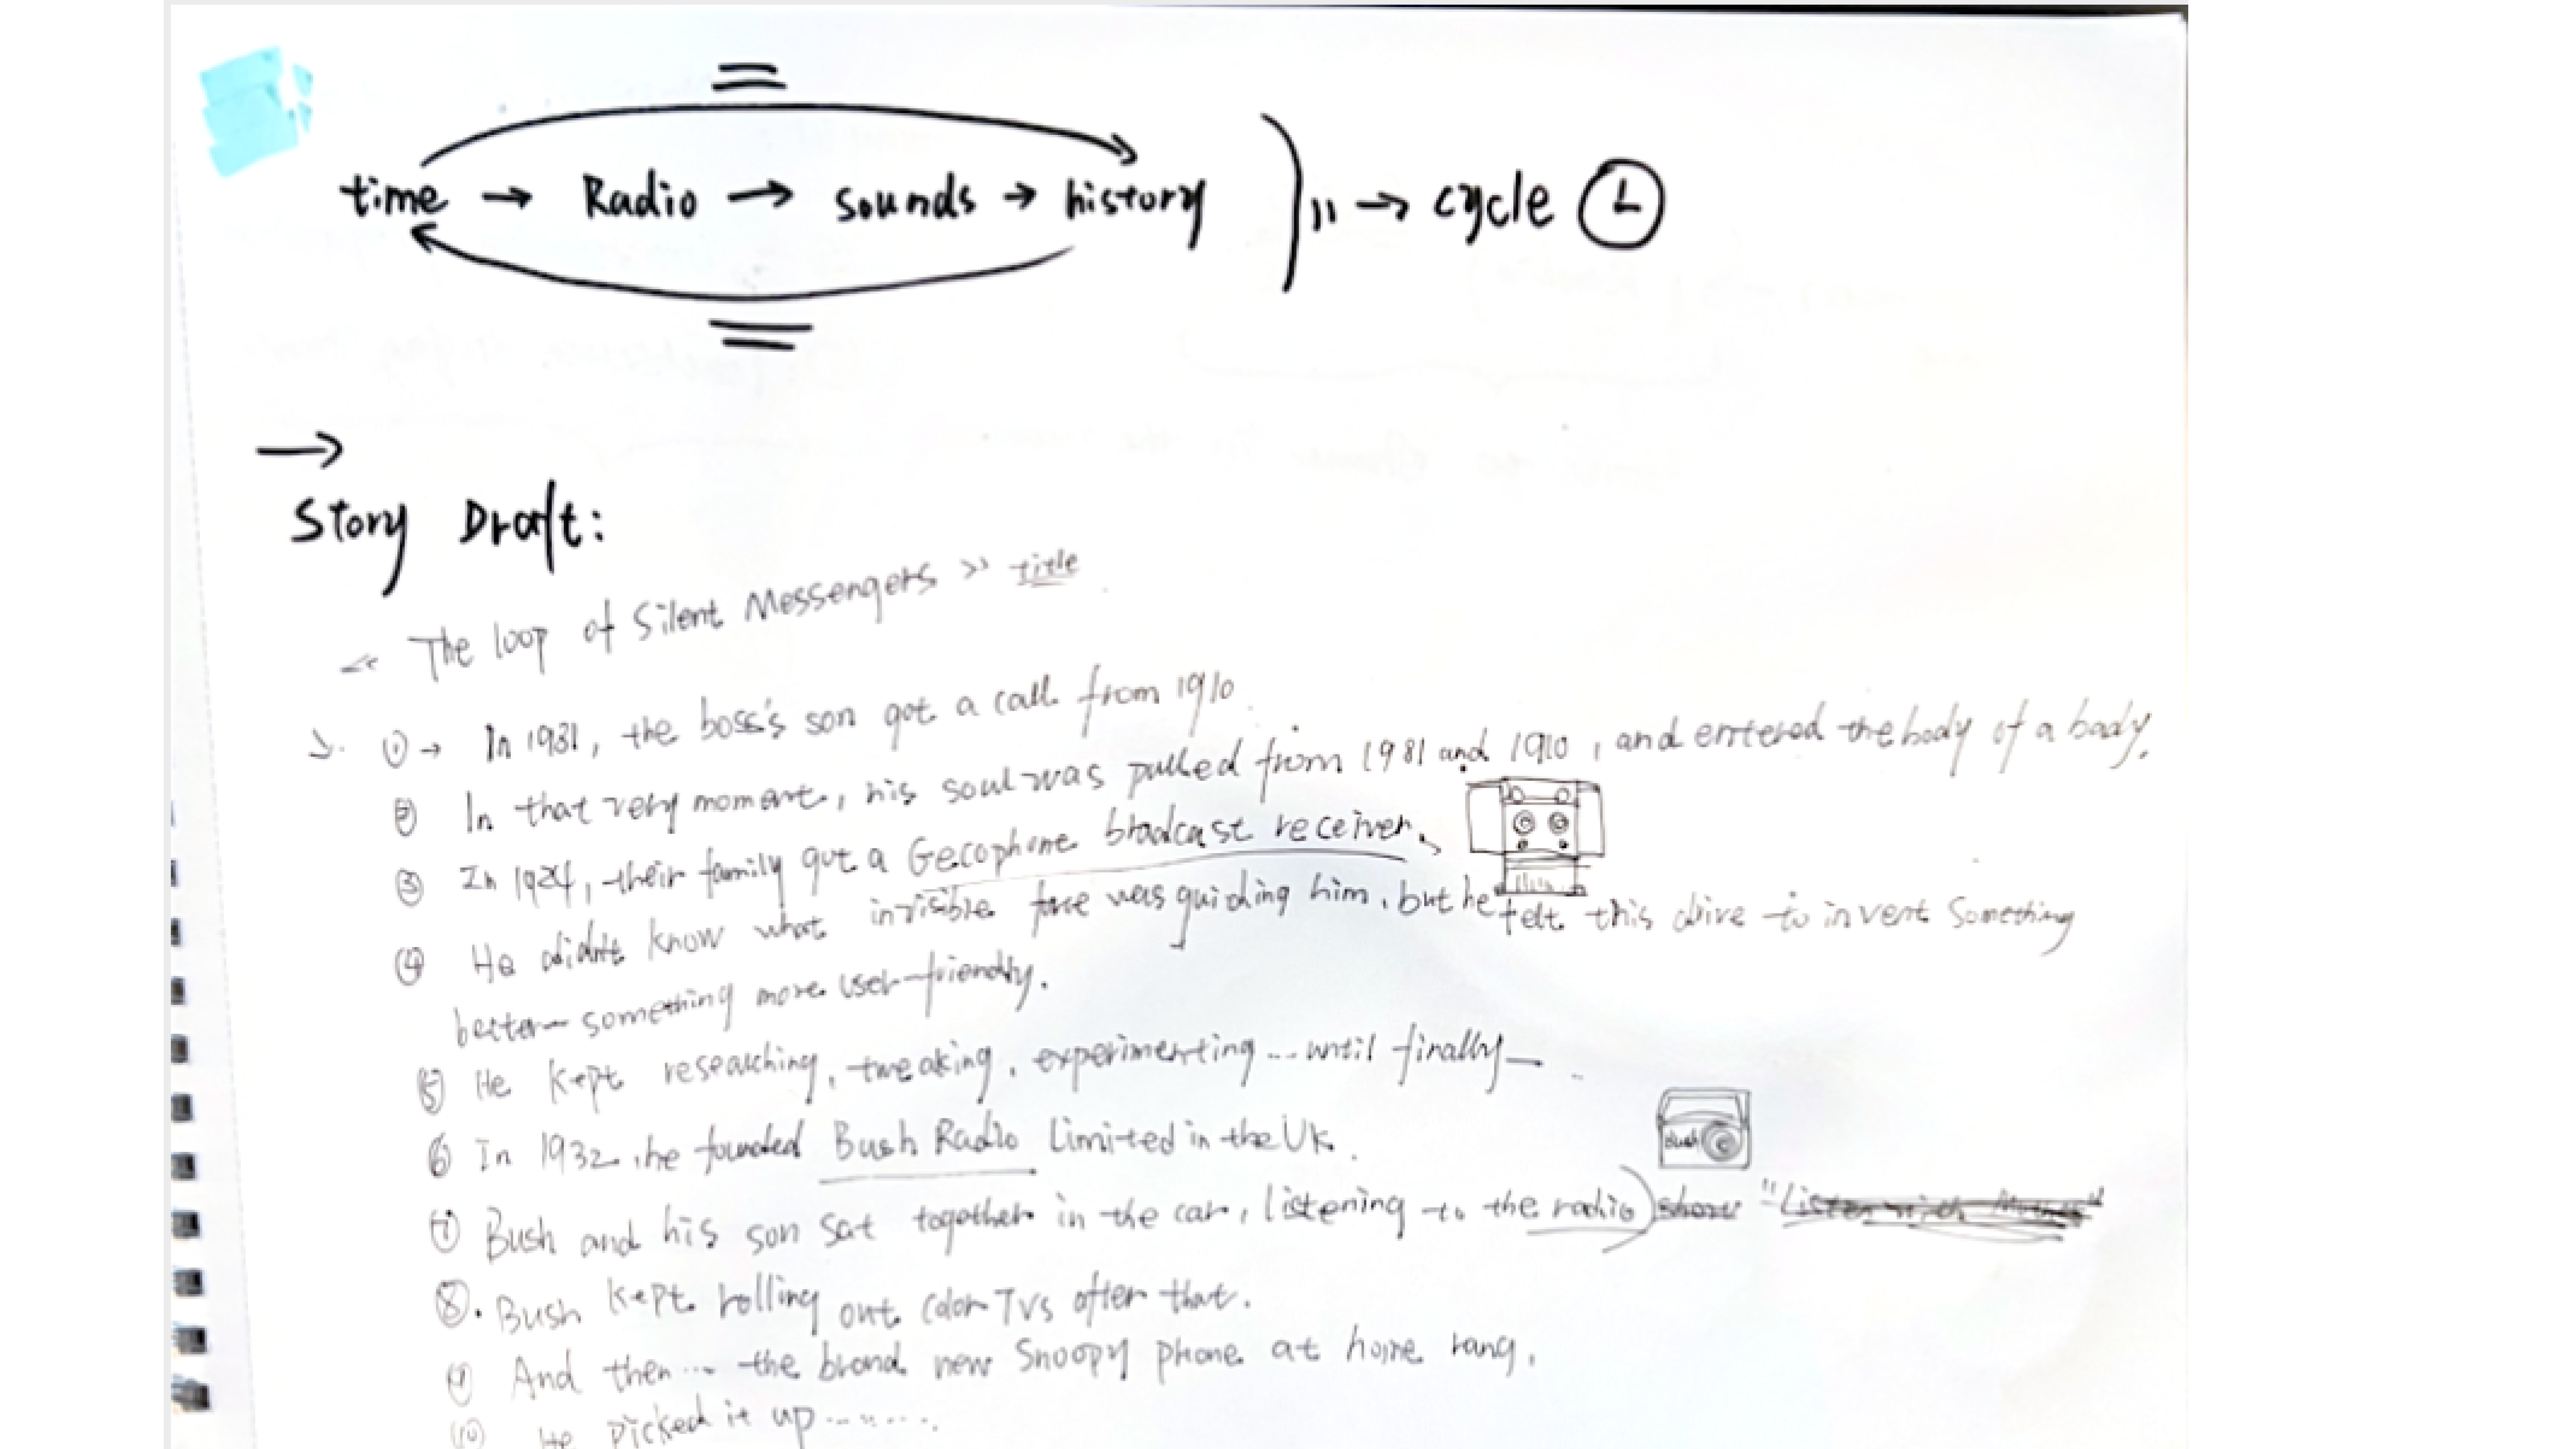 time → Radio → sounds → history → cycle
→
Story Draft:
<< The loop of Silent Messengers >> title
① → In 1981, the boss's son got a call from 1910.
② In that very moment, his soul was pulled from 1981 and 1910, and entered the body of a bady.
③ In 1924, their family got a Gecophone broadcast receiver.
④ He didn't know what invisible force was guiding him, but he felt this drive to invent something
better— something more user-friendly.
⑤ He kept researching, tweaking, experimenting... until finally—
⑥ In 1932, he founded Bush Radio Limited in the UK.
Bush
⑦ Bush and his son sat together in the car, listening to the radio) show "Listen with Mother"
⑧. Bush kept rolling out color TVs after that.
⑨ And then... the brand new Snoopy phone at home rang.
⑩ He picked it up.........